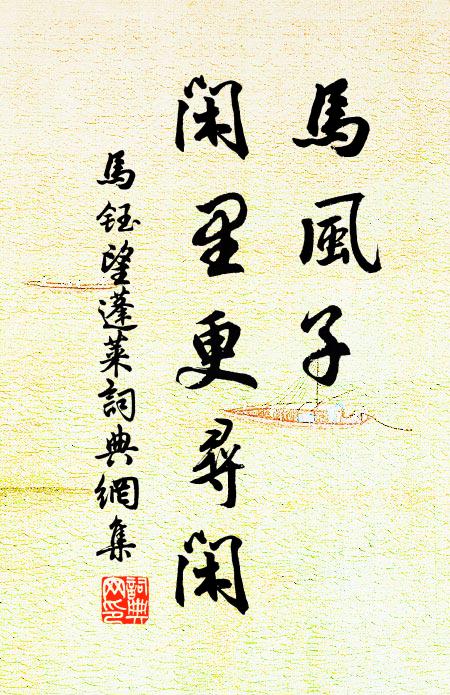 馬風子
閑里更尋閑
馬鈺望蓬萊詞典網集
詞典网印